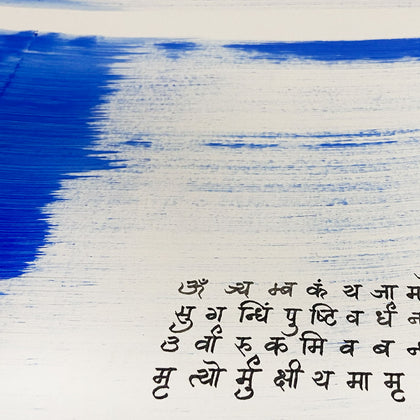 ॐ ज्य म्ब कं य जा म
सु ग न्धिं पु ष्टि व र्ध न
उ र्वा रु क मि व ब
मृ त्यो र्मु क्षी य मा मृ